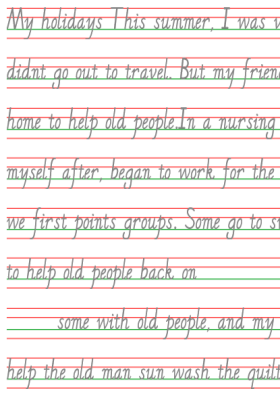 My holidays This summer, I was
didnt go out to travel. But my
home to help old people.In a nursing
myself after, began to work for the
we first points groups. Some go to
to help old people back on
some with old people, and my
help the old man sun wash the quilt